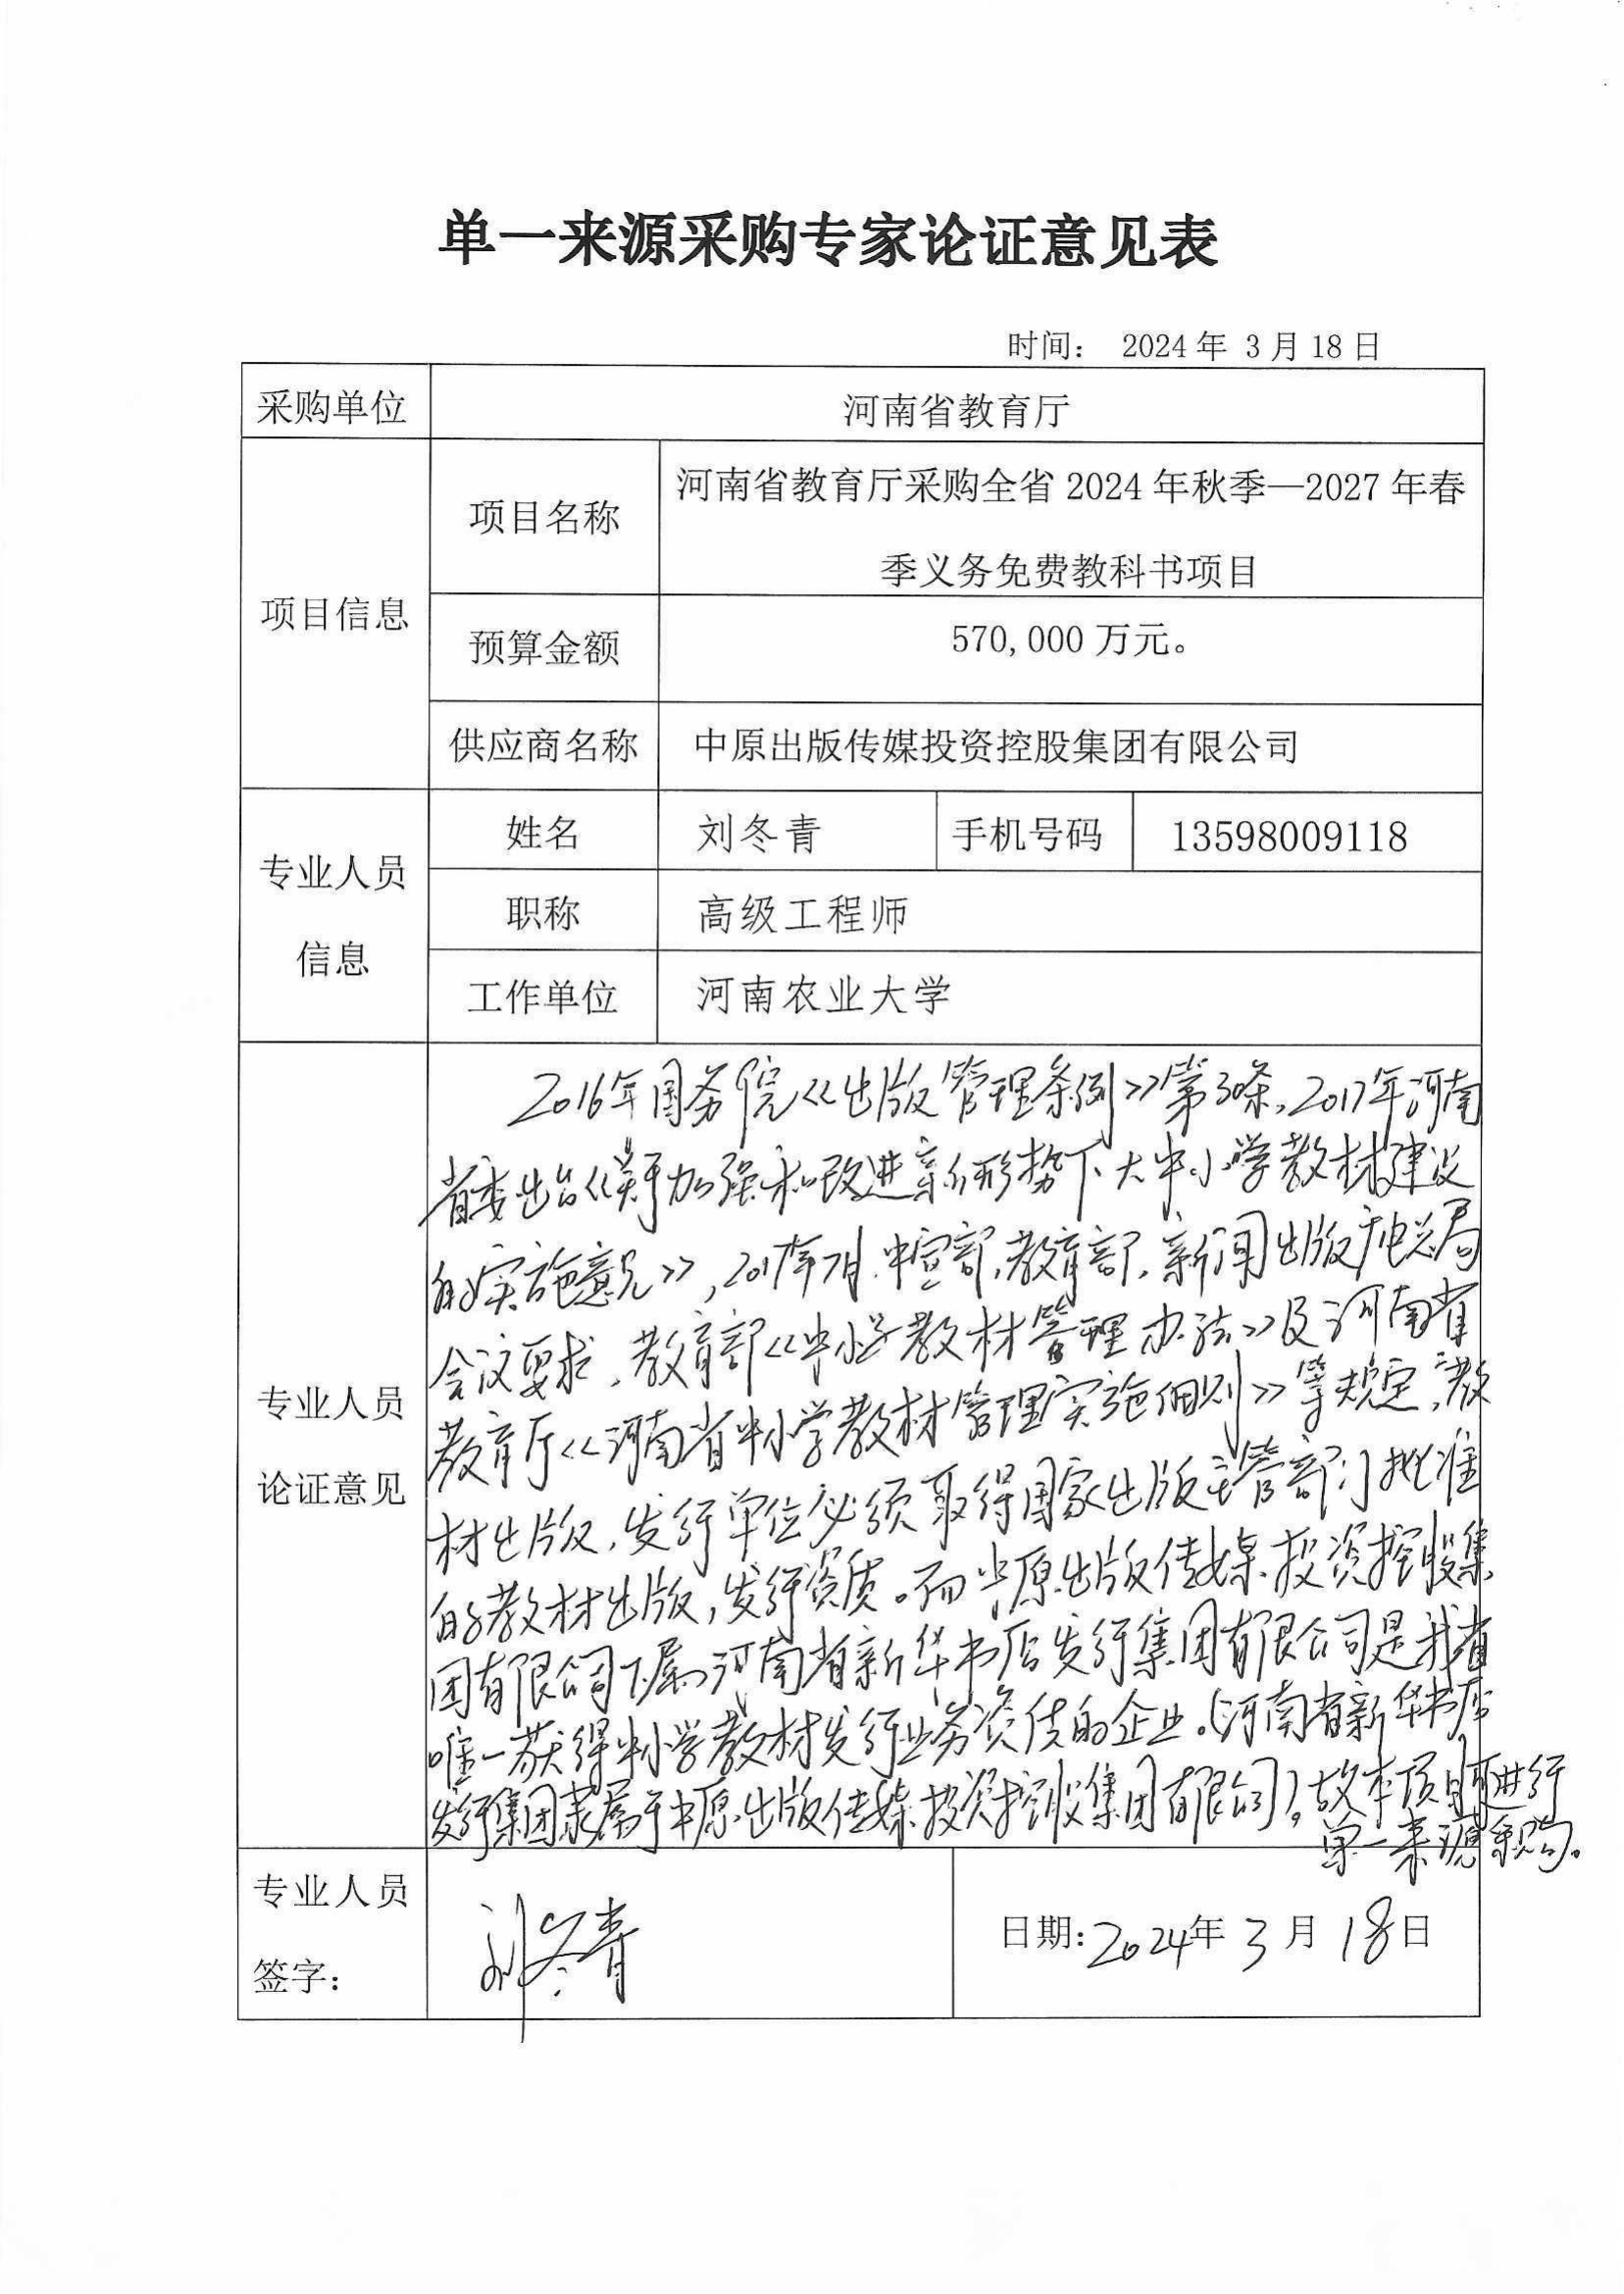 单一来源采购专家论证意见表
时间： 2024年 3月18日
采购单位 河南省教育厅
项目信息
项目名称
河南省教育厅采购全省 2024 年秋季—2027 年春
季义务免费教科书项目
预算金额 570,000 万元。
供应商名称 中原出版传媒投资控股集团有限公司
专业人员
信息
姓名 刘冬青 手机号码 13598009118
职称 高级工程师
工作单位 河南农业大学
专业人员
论证意见
2016年国务院《出版管理条例》第30条，2017年河南
省委出台《关于加强和改进新形势下大中小学教材建设
的实施意见》，2017年7月中宣部、教育部、新闻出版广电总局
会议要求，教育部《中小学教材管理办法》及河南省
教育厅《河南省中小学教材管理实施细则》等规定，教
材出版、发行单位必须取得国家出版主管部门批准
的教材出版，发行资质。而中原出版传媒投资控股集
团有限公司下属河南省新华书店发行集团有限公司是我省
唯一获得中小学教材发行业务资质的企业。（河南省新华书店
发行集团隶属于中原出版传媒投资控股集团有限公司）。故本项目可进行
单一来源采购。
专业人员
签字：
刘冬青
日期：2024年 3月 18日